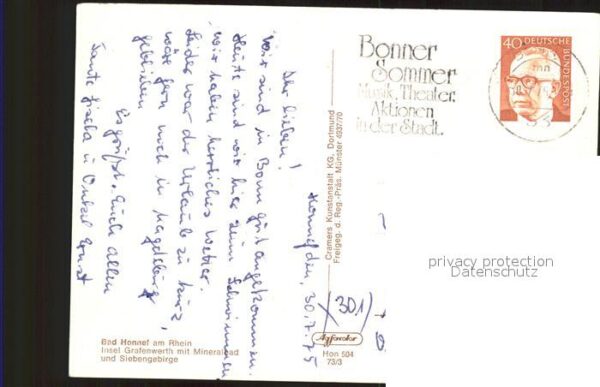 Honnef, den 30.7.75
Ihr Lieben!
Wir sind in Bonn gut angekommen.
Heute sind wir hier zum Schwimmen
wir haben herrliches Wetter.
Leider war der Urlaub zu kurz,
wäre gern noch in Magdeburg
geblieben.
Es grüßt Euch allen
Tante Gisela u Onkel Ernst
(301)
Bad Honnef am Rhein
Insel Grafenwerth mit Mineralbad
und Siebengebirge
Cramers Kunstanstalt KG, Dortmund
Freigeg. d. Reg.-Präs. Münster 4937/70
Agfacolor
Hon 504
73/3
Bonner
Sommer
Musik, Theater,
Aktionen
in der Stadt.
40
DEUTSCHE
BUNDESPOST
privacy protection
Datenschutz